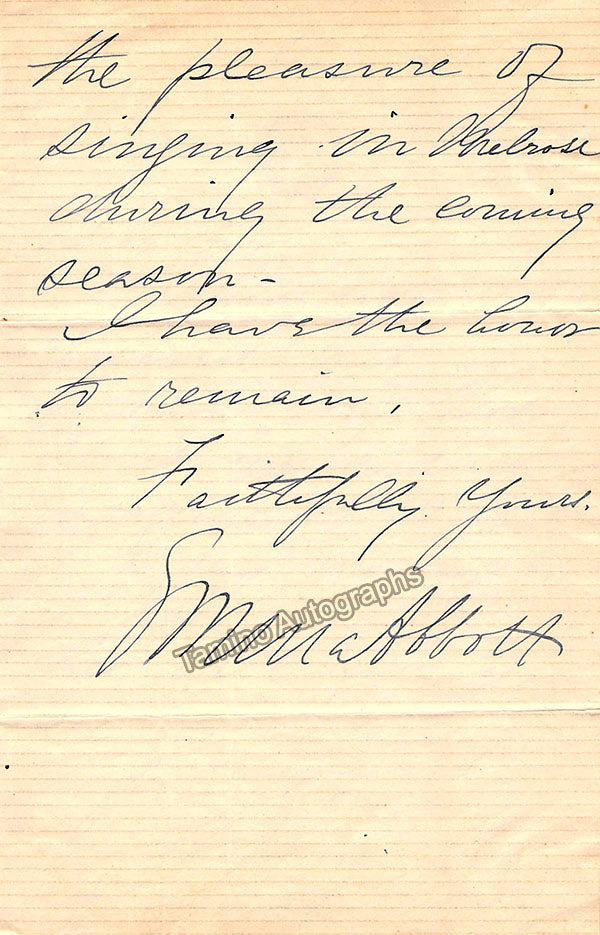 the pleasure of
singing in Melrose
during the coming
season -
I have the honor
to remain,
Faithfully Yours.
Emma Abbott
Tamino Autographs